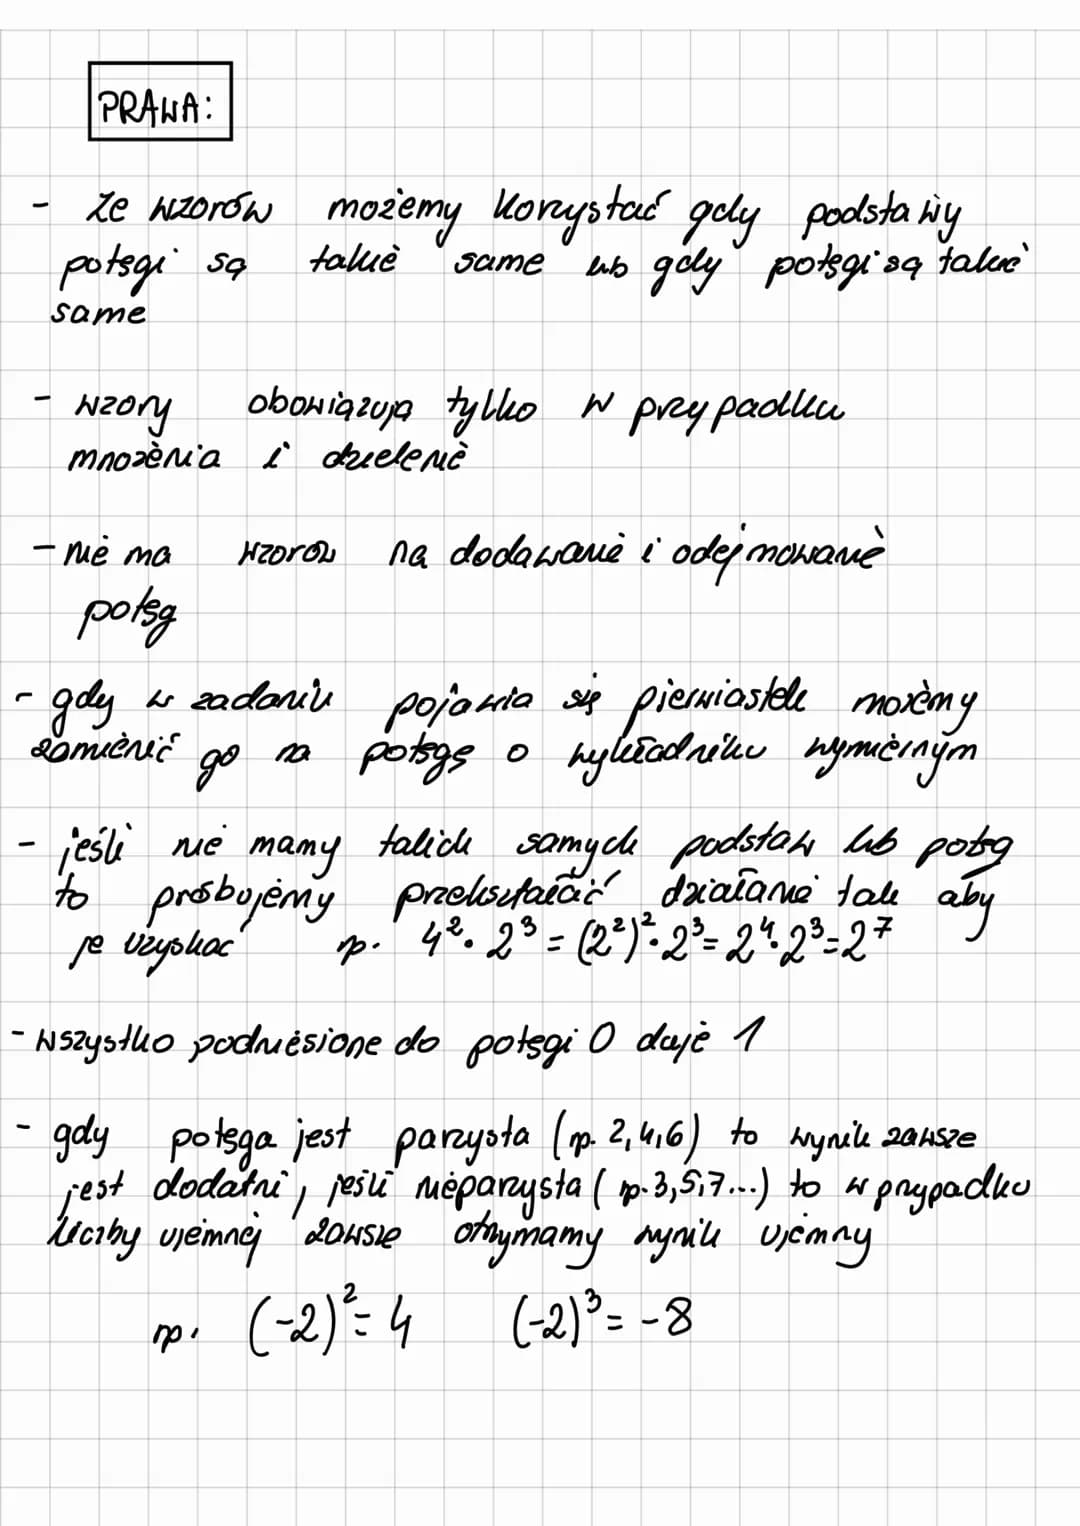 PRAWA:
- ze wzorów możemy korzystać gdy podstawy
potęgi są takie same lub gdy potęgi są takie
same
- wzory obowiązują tylko w przypadku
mnożenia i dzielenie
- nie ma wzorów na dodawanie i odejmowanie
potęg
- gdy w zadaniu pojawia się pierwiastek możemy
zamienić go na potęgę o wykładniku wymiernym
- jeśli nie mamy takich samych podstaw lub potęg
to próbujemy przekształcić działanie tak aby
je uzyskać np. 4²·2³=(2²)²·2³=2⁴·2³=2⁷
- wszystko podniesione do potęgi 0 daje 1
- gdy potęga jest parzysta (np. 2,4,6) to wynik zawsze
jest dodatni, jeśli nieparzysta (np. 3,5,7...) to w przypadku
liczby ujemnej zawsze otrzymamy wynik ujemny
np. (-2)²=4 (-2)³=-8